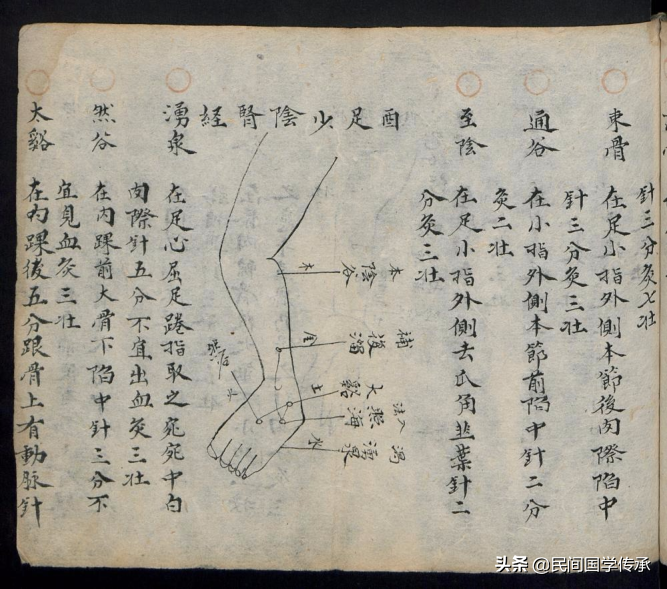 針三分灸七壮
東骨 在足小指外側本節後肉際陷中
針三分灸三壮
通谷 在小指外側本節前陷中針二分
灸二壮
至陰 在足小指外側去爪角韭葉針二
分灸三壮
酉足少陰腎経
本陰谷
木
補復溜
金
大谿
土
注入照海
瀉湧泉
木
湧泉 在足心屈足踡指取之宛死中白
肉際針五分不宜出血灸三壮
然谷 在內踝前大骨下陷中針三分不
宜見血灸三壮
太谿 在內踝後五分跟骨上有動脉針
头条 @民间国学传承